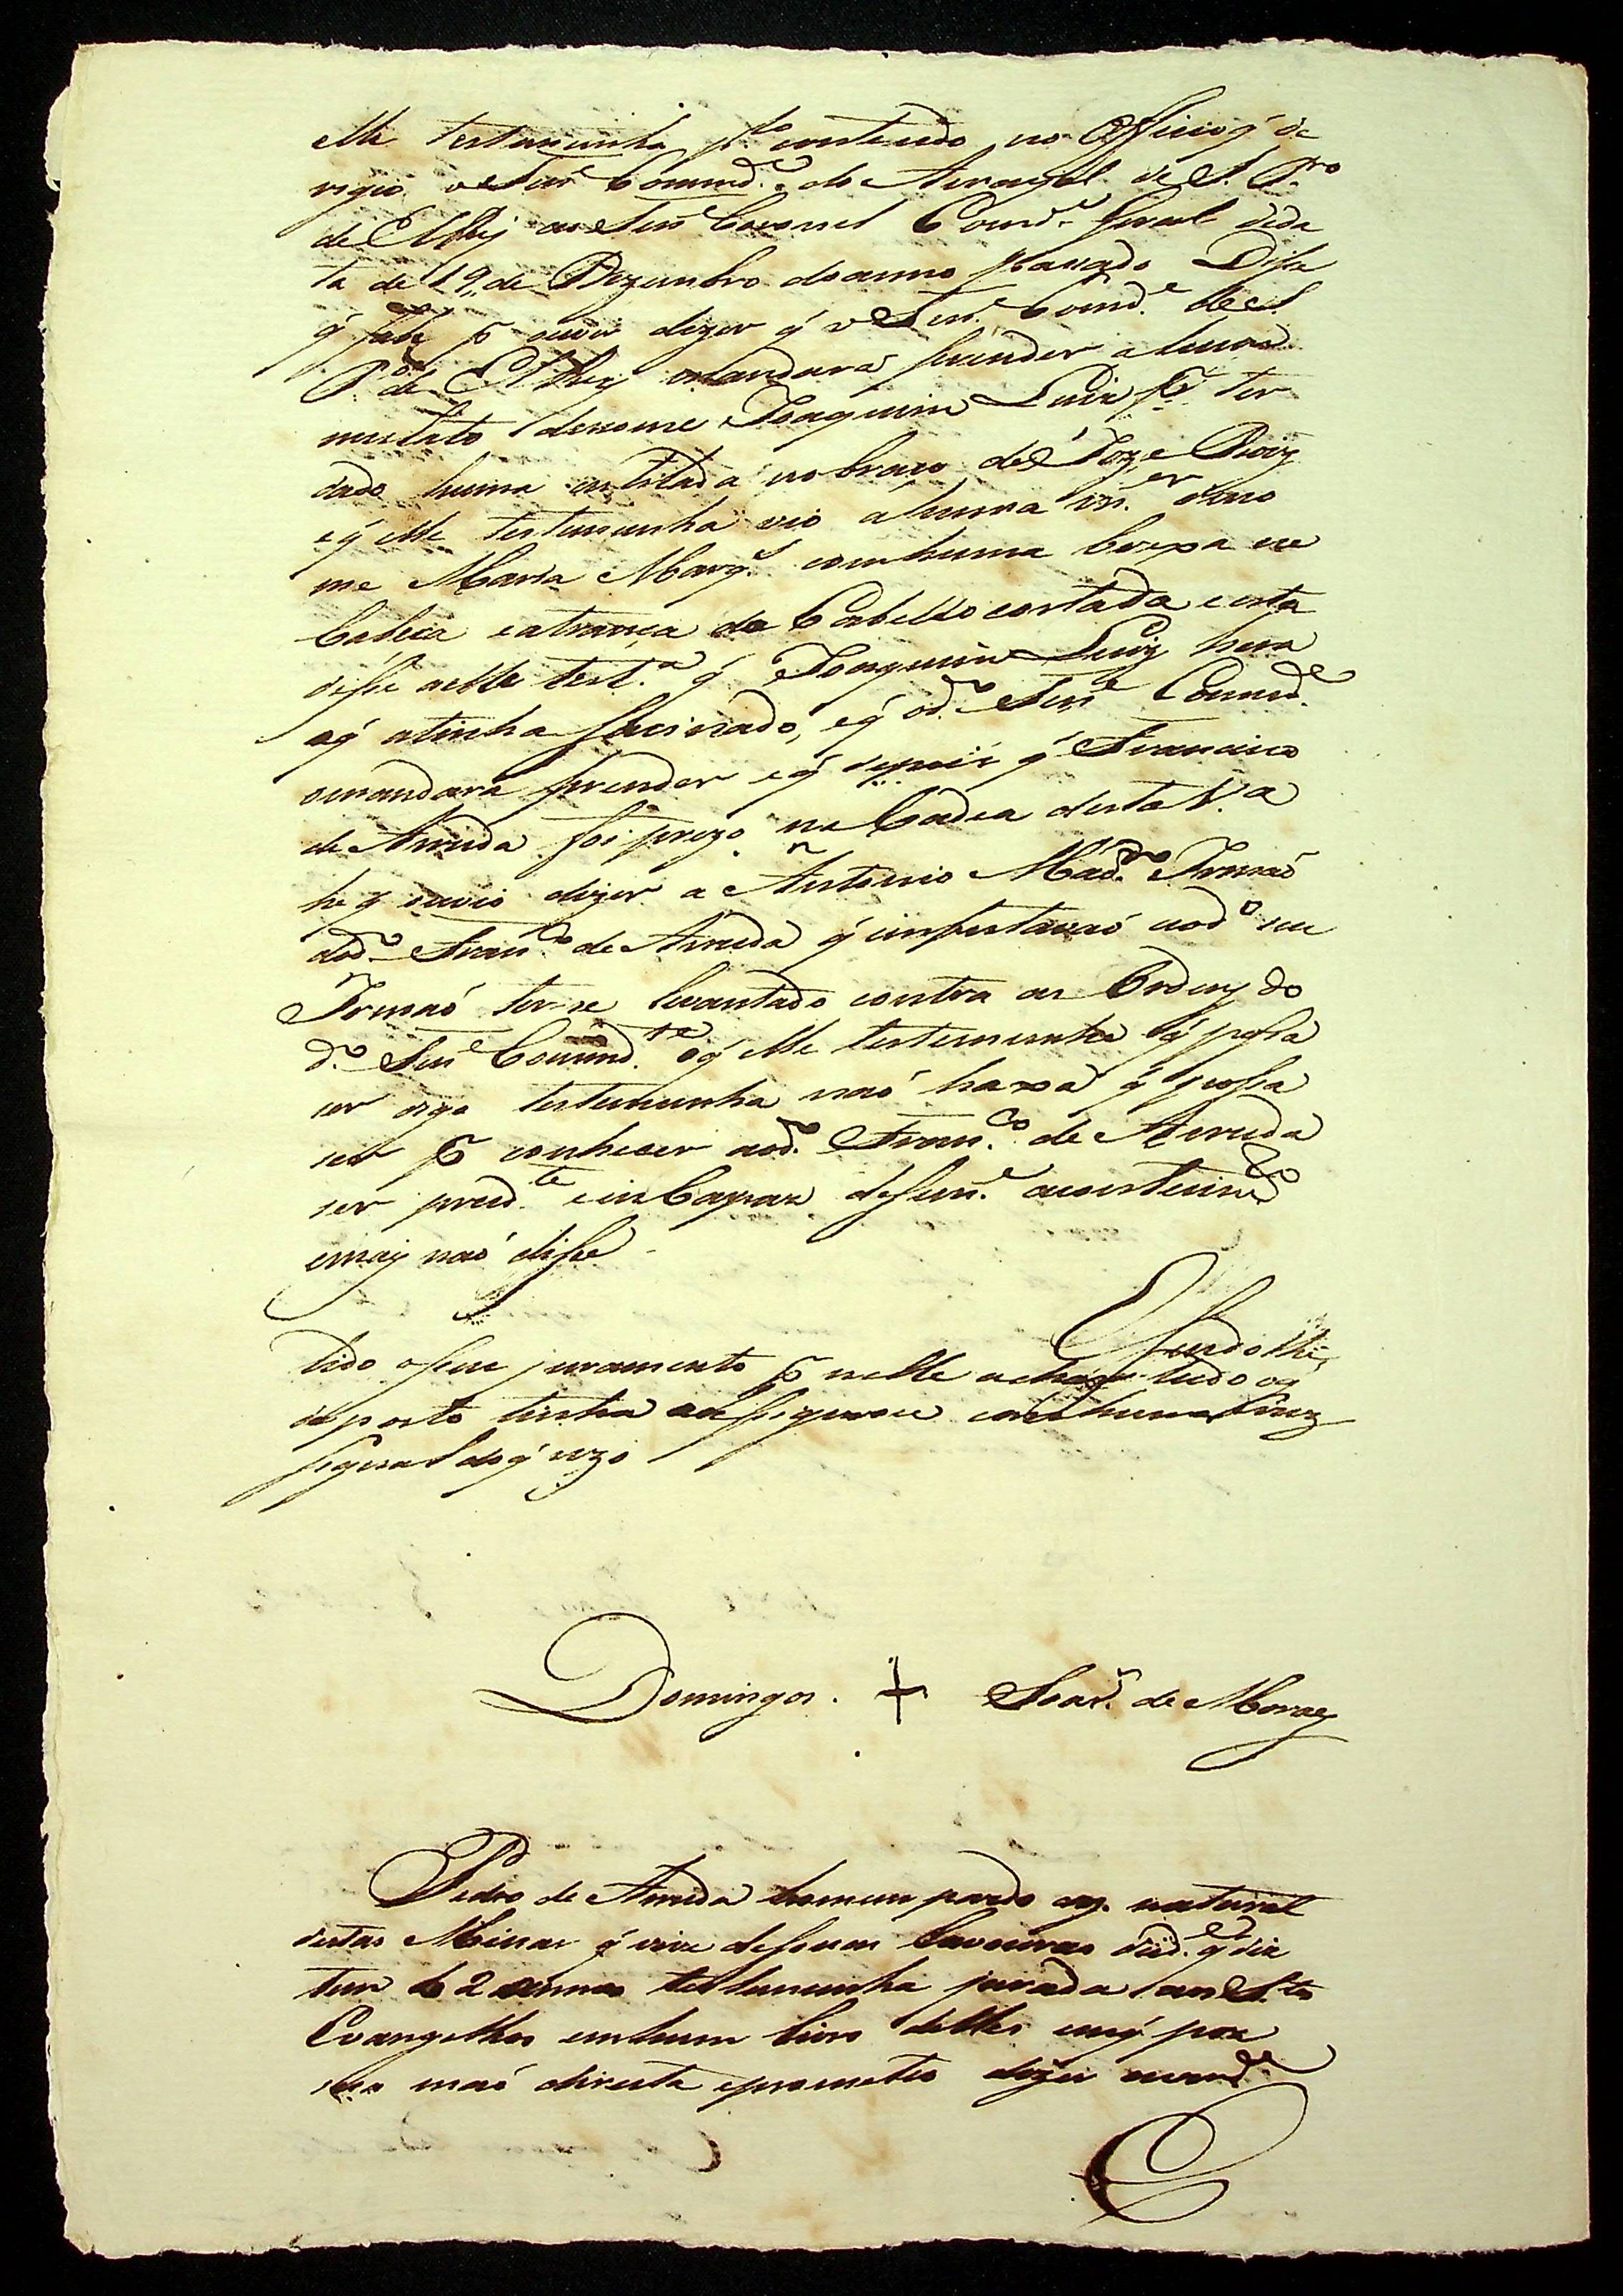 elle testemunha p.lo contendo no Officio q' de
rigio o Ten.e Command.e do Arrayal de S. P.ro
de ElRey ao Ten.e Coronel Comd.e Geral deda
ta de 19, de Dezembro do anno passado Disse
q' sabe p ouvir dizer q' o Ten.e Comd.e de S.
P.o de ElRey mandara prender a hum
mulato denome Joaquim Luiz p.r ter
dado huma cutilada no braço de Joze Roiz
e q' elle testemunha vio a huma m.er de no
me Maria Marq.s com huma brexa na
Cabeça e a trança de Cabello cortada e esta
disse a elle test.a q' Joaquim Luiz hera
o q' a tinha feito, e q' o d.o Ten.e Commd.e
o mandara prender e q' depois q' Francisco
de Arruda foi prezo na Cadea desta V.a
he q' ouvio dizer a Antonio Mad.o Irmaó
do d.o Fran.co de Arruda q' imputavaó ao d.o seu
Irmaó ter-se levantado contra as Ordens do
d.o Ten.e Command.te o q' elle testemunha q' possa
ser diga testemunha naó haxa q' possa
ser p conhecer ao d.o Fran.co de Arruda
ser prud.te e inCapaz de sim.e acontecim.to
e mais naó disse
E sendo lhe
lido o seu juramento p nelle achar tudo o q'
deposto tinha asignou-se com huma Cruz
signal do q' uza
Domingos. + Soar.s de Moraes
Pedro de Arruda homem pardo cazd. natural
destas Minas q' vive de suas lavouras de id.e q' dis
ter 62 annos testemunha jurada aos S.tos
Evangelhos em hum livro delles em q' pos
sua maó direita e prometeo dizer averd.e